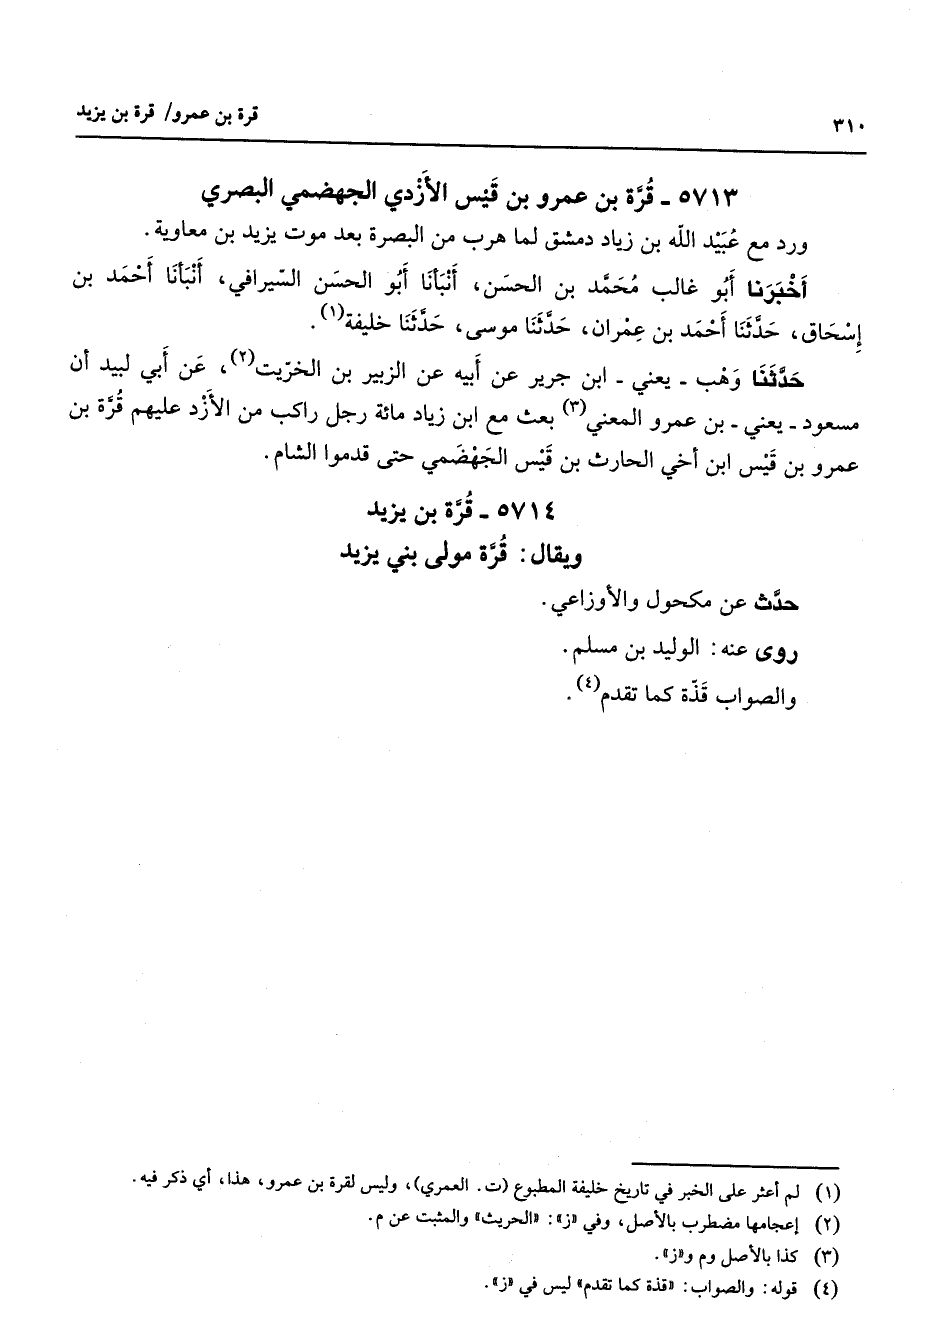 ٣١٠
قرة بن عمرو/ قرة بن يزيد
٥٧١٣ ـ قُرَّة بن عمرو بن قَيْس الأَزْدي الجهضمي البصري
ورد مع عُبَيْد اللّه بن زياد دمشق لما هرب من البصرة بعد موت يزيد بن معاوية.
أَخْبَرَنا أَبُو غالب مُحَمَّد بن الحسَن، أَنْبَأنَا أَبُو الحسَن السّيرافي، أَنْبَأنَا أَحْمَد بن
إِسْحَاق، حَدَّثَنَا أَحْمَد بن عِمْران، حَدَّثَنَا موسى، حَدَّثَنَا خليفة(١).
حَدَّثَنَا وَهْب ـ يعني ـ ابن جرير عن أَبيه عن الزبير بن الخرّيت(٢)، عَن أَبي لبيد أن
مسعود ـ يعني ـ بن عمرو المعني(٣) بعث مع ابن زياد مائة رجل راكب من الأَزْد عليهم قُرَّة بن
عمرو بن قَيْس ابن أخي الحارث بن قَيْس الجَهْضَمي حتى قدموا الشام.
٥٧١٤ ـ قُرَّة بن يزيد
ويقال: قُرَّة مولى بني يزيد
حدَّث عن مكحول والأوزاعي.
روى عنه: الوليد بن مسلم.
والصواب قَذّة كما تقدم(٤).
(١) لم أعثر على الخبر في تاريخ خليفة المطبوع (ت. العمري)، وليس لقرة بن عمرو، هذا، أي ذكر فيه.
(٢) إعجامها مضطرب بالأصل، وفي «ز»: «الحريث» والمثبت عن م.
(٣) كذا بالأصل وم و«ز».
(٤) قوله: والصواب: «قذة كما تقدم» ليس في «ز».